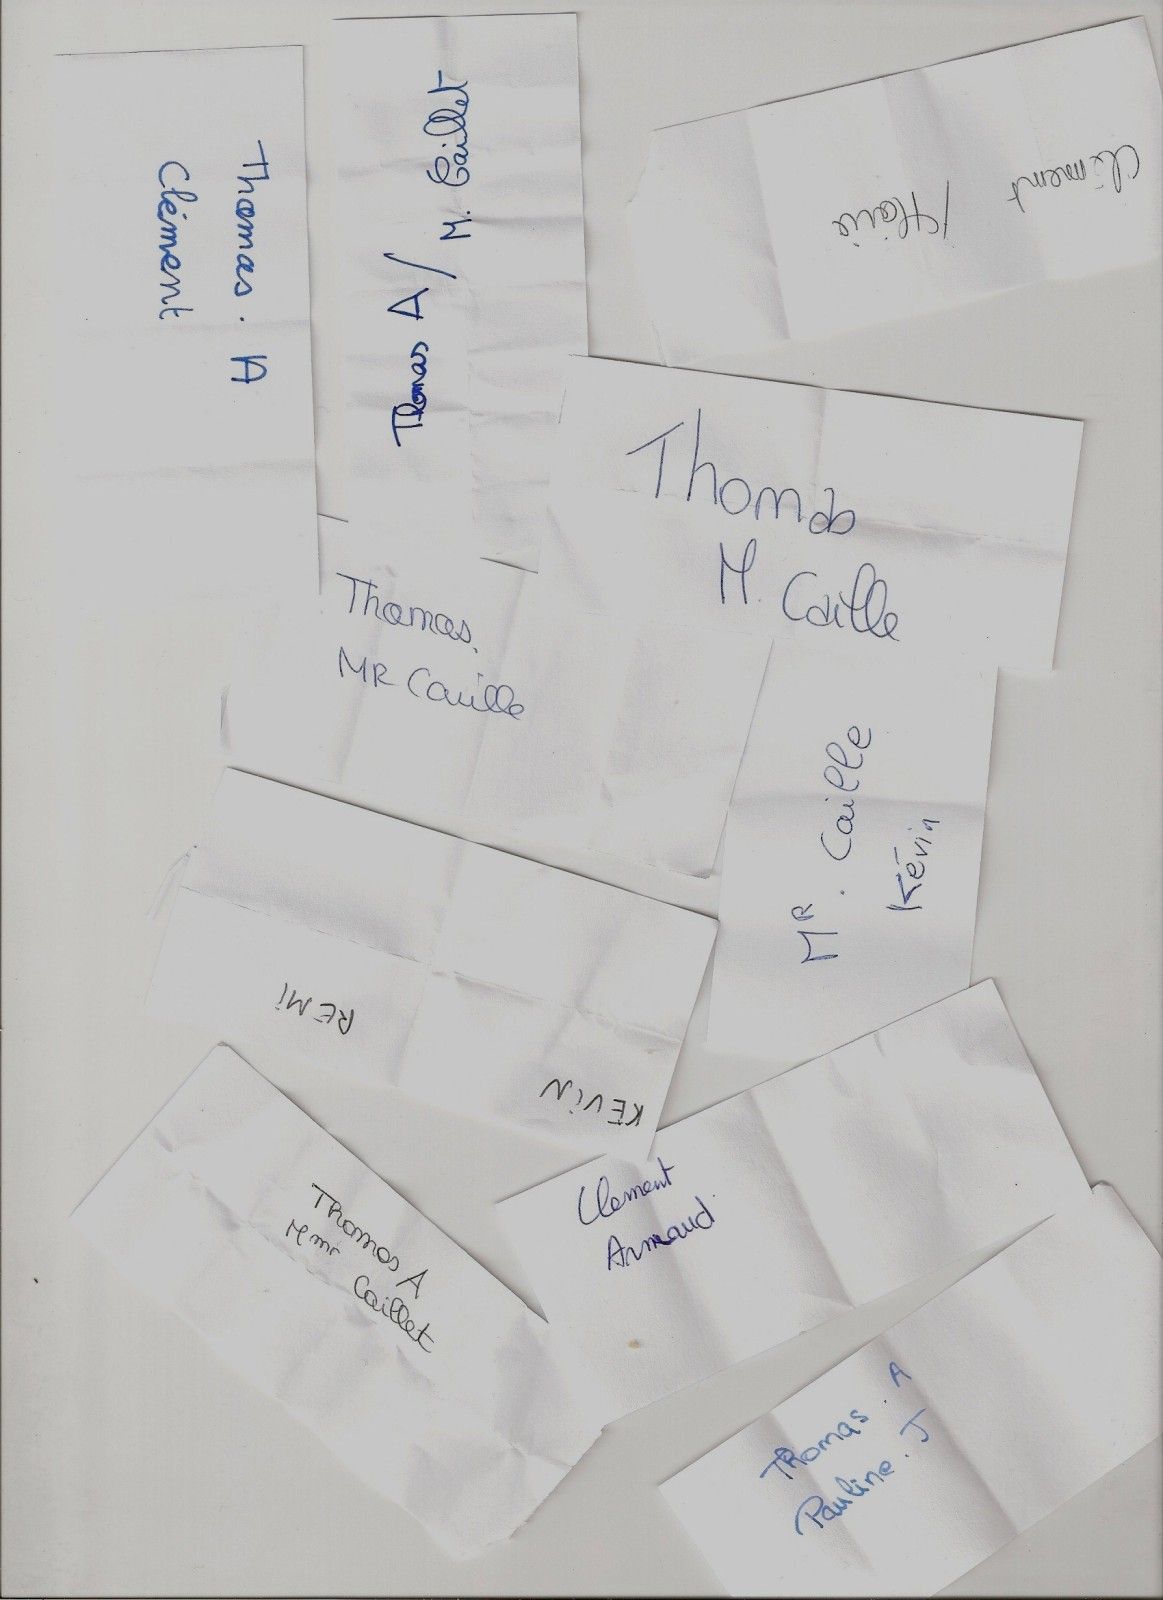 Thomas. A
Clément
Thomas A / M. Caillet
Clément
/ Flavie
Thomas
M. Caille
Thomas.
MR Caille
MR. Caille
Kévin
REMI
KEViN
Clement
Arnaud
Thomas A
Mme Caillet
Thomas. A
Pauline. J